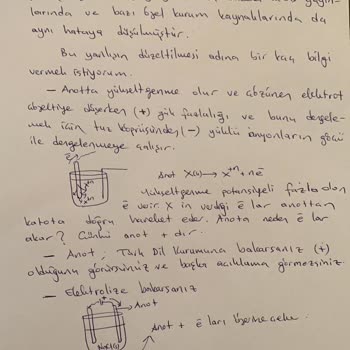 larında ve bazı özel kurum kaynaklarında da
aynı hataya düşülmüştür.
Bu yanlışın düzeltilmesi adına bir kaç bilgi
vermek istiyorum.
— Anotta yükseltgenme olur ve çözünen elektrot
çözeltiye düşerken (+) yük fazlalığı ve bunu dengele-
mek için tuz köprüsünden (-) yüklü anyonların göçü
ile dengelenmeye çalışır.
Anot X(k) → X⁺ⁿ + nē
Yükseltgenme potansiyeli fazladan
ē verir. X in verdiği ē lar anottan
katota doğru hareket eder. Anota neden ē lar
akar? Çünkü anot + dır.
— Anot, Türk Dil Kurumuna bakarsanız (+)
olduğunu görürsünüz ve başka açıklama görmezsiniz
— Elektrolize bakarsanız
Anot
Anot + ē ları